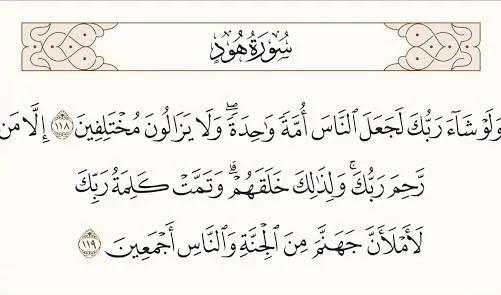 سُورَةُ هُودٍ
وَلَوْ شَآءَ رَبُّكَ لَجَعَلَ ٱلنَّاسَ أُمَّةً وَٰحِدَةً ۖ وَلَا يَزَالُونَ مُخْتَلِفِينَ ١١٨ إِلَّا مَن
رَّحِمَ رَبُّكَ ۚ وَلِذَٰلِكَ خَلَقَهُمْ ۗ وَتَمَّتْ كَلِمَةُ رَبِّكَ
لَأَمْلَأَنَّ جَهَنَّمَ مِنَ ٱلْجِنَّةِ وَٱلنَّاسِ أَجْمَعِينَ ١١٩